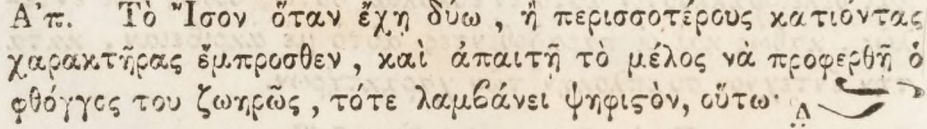 Α'π. Τὸ Ἴσον ὅταν ἔχῃ δύω, ἢ περισσοτέρους κατιόντας
χαρακτῆρας ἔμπροσθεν, καὶ ἀπαιτῇ τὸ μέλος νὰ προφερθῇ ὁ
φθόγγος του ζωηρῶς, τότε λαμβάνει ψηφιϛὸν, οὕτω·